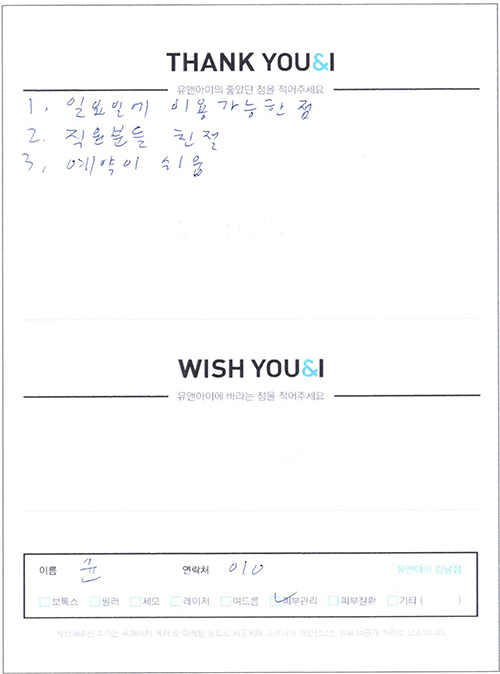 THANK YOU&I
유앤아이의 좋았던 점을 적어주세요
1. 일요일에 이용가능한 점
2. 직원분들 친절
3. 예약이 쉬움
WISH YOU&I
유앤아이에 바라는 점을 적어주세요
이름 윤 연락처 010 유앤아이 강남점
보톡스 필러 제모 레이저 여드름 피부관리 피부질환 기타 ( )